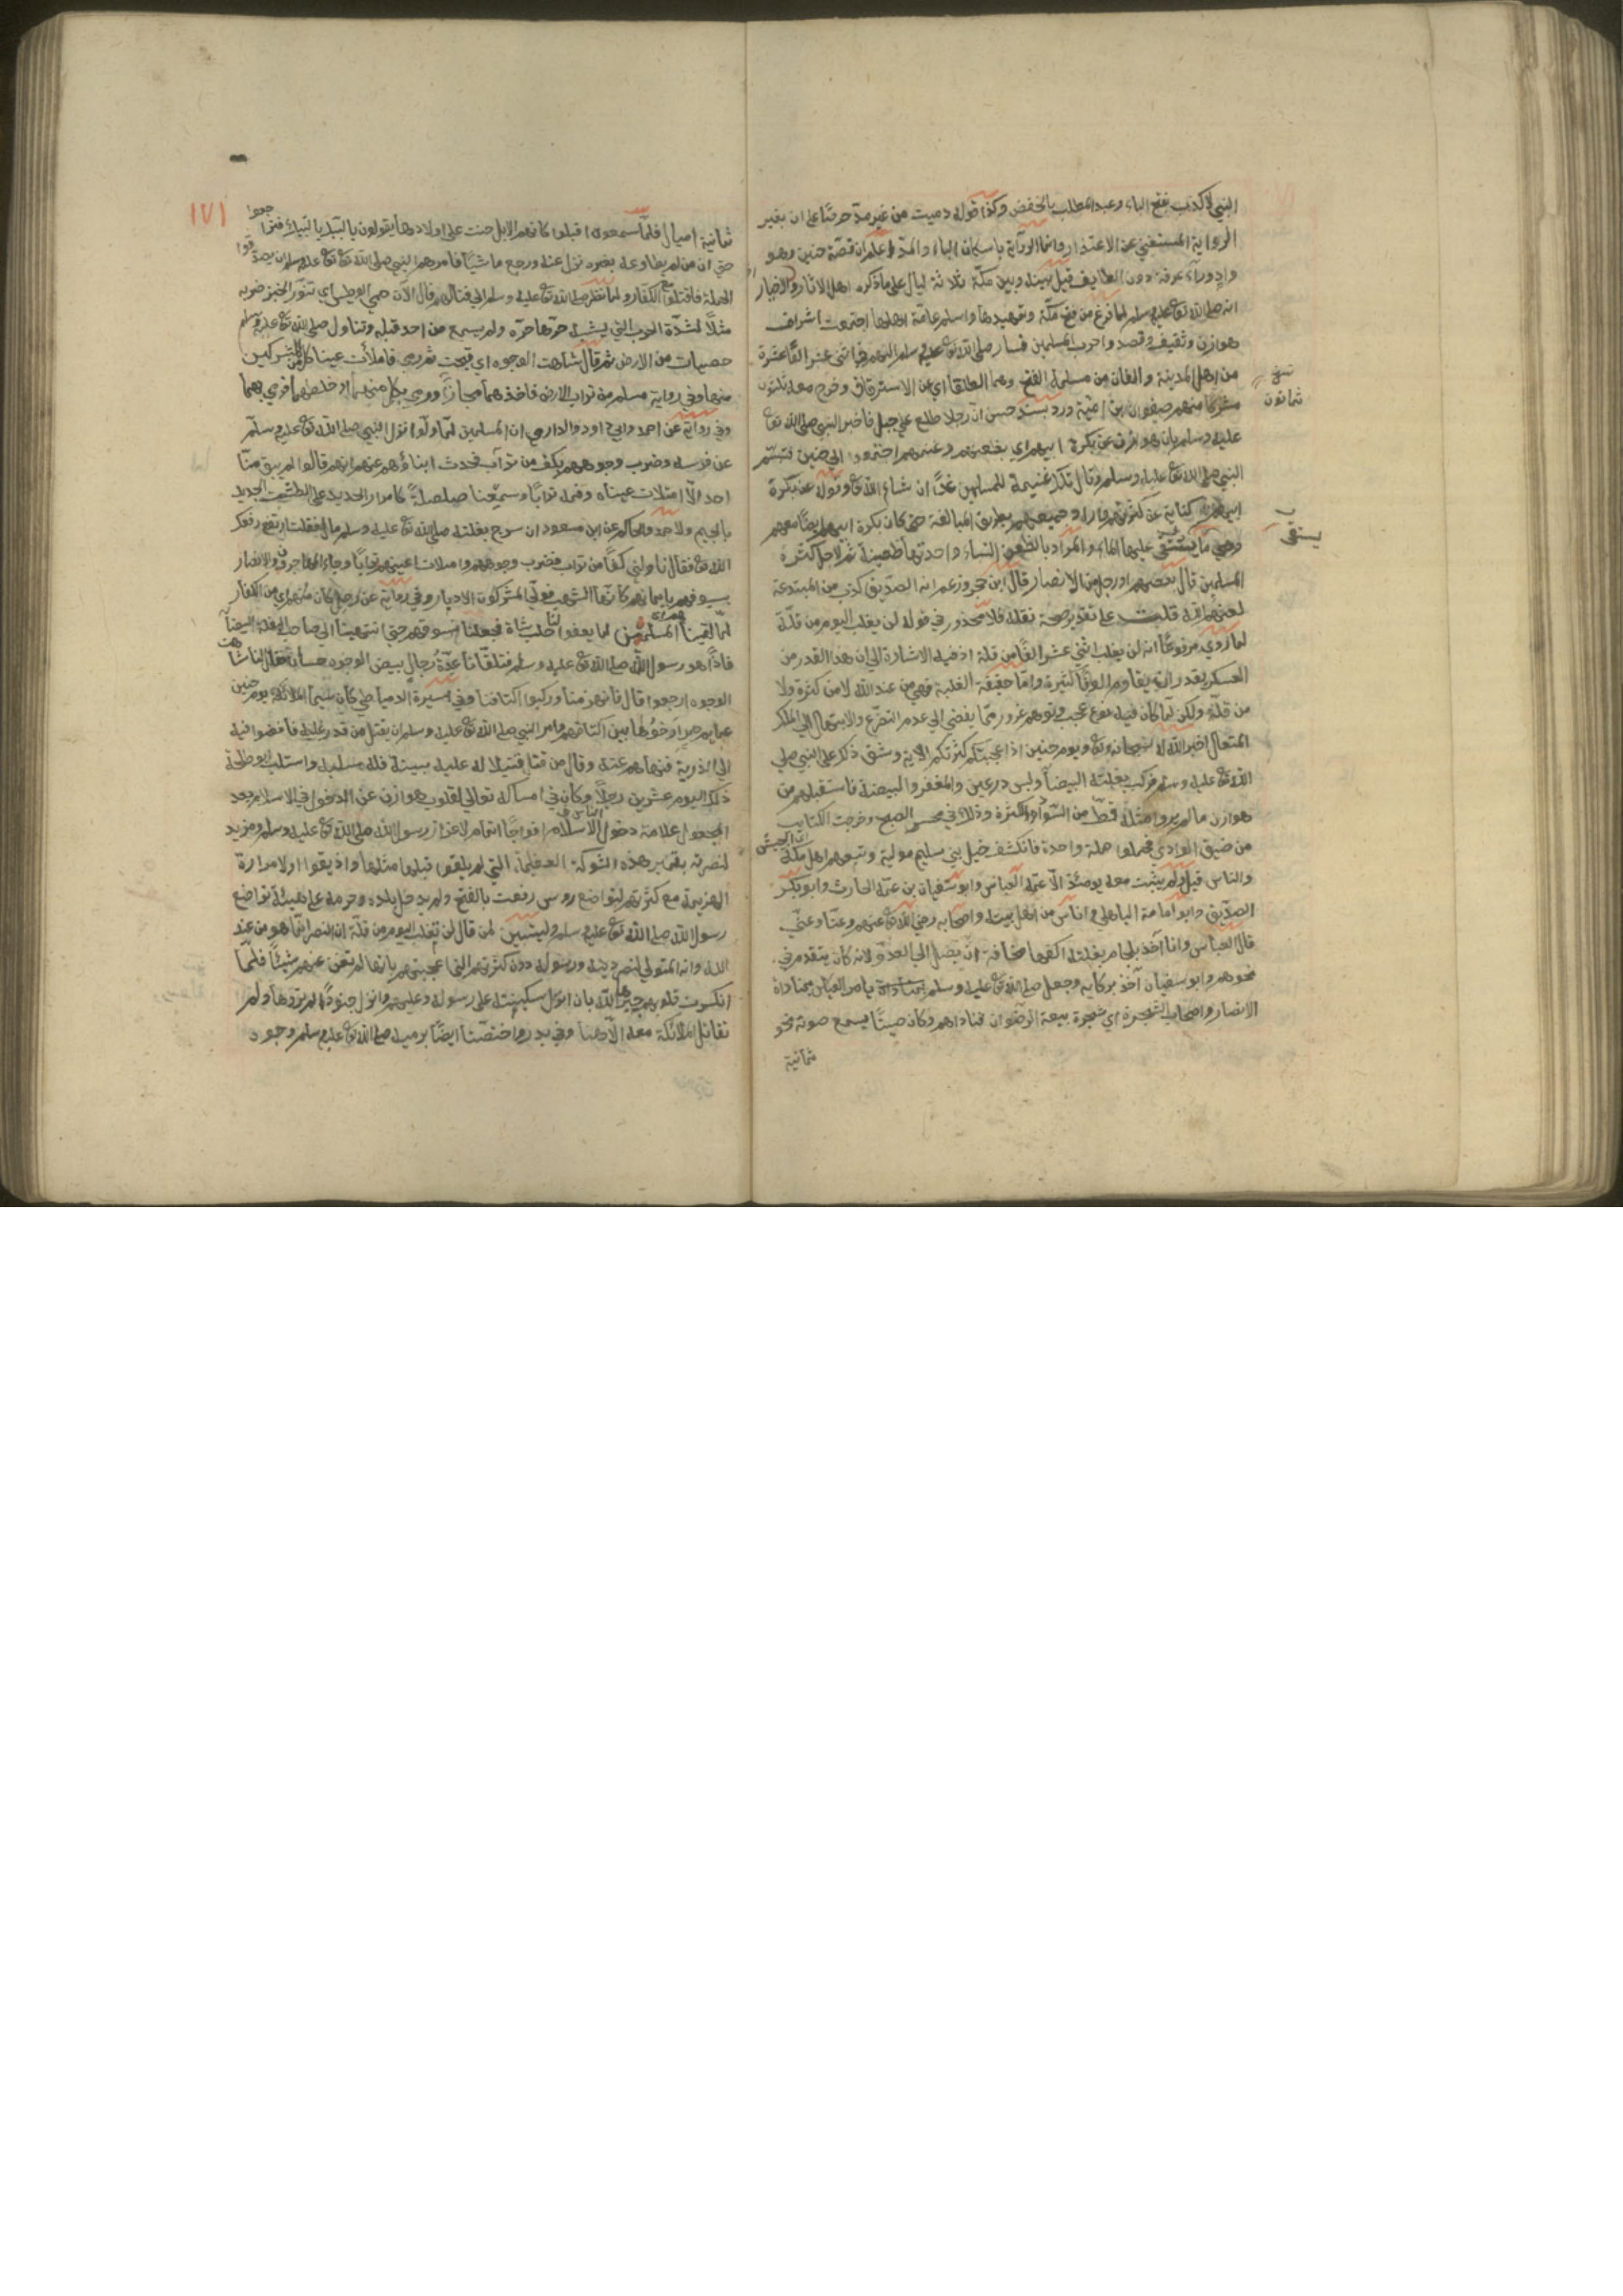 النبي لا كذب بفتح الباء وعبد المطلب بالخفض وكذا قوله دميت من غير مد حرصا على ان بغير
الرواية المستغني عن الاعتذار وانما الرواية باسكان الباء والمد واعلم ان قصة حنين وهو
واد وراء عرفة دون الطايف قيل بينه وبين مكة ثلاثة ليال على ما ذكره اهل الاثار والاخبار
انه صلى الله تع عليه وسلم لما فرغ من فتح مكة وتمهيدها واسلم عامة اهلها اجتمعت اشراف
هوازن وثقيف وقصدوا حرب المسلمين فسار صلى الله تع عليه وسلم اليهم في اثني عشر الفا عشرة
من اهل المدينة والفان من مسلمة الفتح وهم الطلقا اي عن الاسترقاق وخرج معه ثلثون
نسخ
ثمانون
مشركا منهم صفوان بن امية ورد بسند حسن ان رجلا طلع على جبل فاخبر النبي صلى الله تع
عليه وسلم بان هوازن عن بكرة ابيهم اي بظعنهم وغنمهم اجتمعوا الى حنين فتبسم
النبي صلى الله تع عليه وسلم وقال تلك غنيمة للمسلمين غدا ان شاء الله تع وقوله عن بكرة
ابيهم كناية عن كثرتهم وجميعهم بطريق المبالغة حتى كان بكرة ابيهم ايضا معهم
وهي ما يستقى عليها الماء والمراد بالظعن النساء واحدتها ظعينة ثم لاجل كثرة
يستقى
المسلمين قال بعضهم او رجل من الانصار قال ابن حجر وزعم انه الصديق كذب من المبتدعة
لعنهم الله قلت على تقدير صحة نقله فلا محذور في قوله لن يغلب اليوم من قلة
لما روي مرفوعا انه لن يغلب اثني عشر الفا من قلة اذ فيه الاشارة الى ان هذا القدر من
العسكر يقدر ان يقاوم الوفا كثيرة واما حقيقة الغلبة فهي من عند الله لا من كثرة ولا
من قلة ولكن لما كان فيه نوع عجب وتوهم غرور مما يفضي الى عدم التضرع والابتهال الى الملك
المتعال اخبر الله سبحانه وتع ويوم حنين اذ اعجبتكم كثرتكم الاية وشق ذلك على النبي صلى
الله تع عليه وسلم فركب بغلته البيضا ولبس درعين والمغفر والبيضة فاستقبلهم من
هوازن ما لم يروا مثله قط من السواد والكثرة وذلك في غبش الصبح وخرجت الكتايب
من ضيق الوادي فحملوا حملة واحدة فانكشف خيل بني سليم مولية وتبعهم اهل مكة
والناس قيل ولم يثبت معه يومئذ الا عمه العباس وابو سفيان بن عمه الحارث وابو بكر
الصديق وابو امامة الباهلي واناس من اهل بيته واصحابه رضي الله تع عنهم وعنا وعني
قال العباس وانا آخذ بلجام بغلته اكفها مخافة ان يصل الى العدو لانه كان يتقدم في
نحوهم وابو سفيان آخذ بركابه وجعل صلى الله تع عليه وسلم يامر العباس بمناداة
الانصار واصحاب الشجرة اي شجرة بيعة الرضوان فناداهم وكان صيتا يسمع صوته نحو
ثمانية
١٧١
ثمانية اميال فلما سمعوه اقبلوا كانهم الابل حنت على اولادها يقولون يالبيك يالبيك
حتى ان من لم يطاوعه بعيره نزل عنه ورجع ماشيا فامرهم النبي صلى الله تع عليه وسلم ان يصدقوا
الحملة فاقتتلوا مع الكفار ولما نظر صلى الله تع عليه وسلم الى قتالهم قال الآن حمي الوطيس اي تنور الخبز ضربه
مثلا لشدة الحرب التي يشبه حرها حره ولم يسمع من احد قبله وتناول صلى الله تع عليه وسلم
حصيات من الارض ثم قال شاهت الوجوه اي قبحت ثم رمى فامتلأت عينا كل من المشركين
منها وفي رواية مسلم من تراب الارض فاخذهما مجازا ورمى بكل منهما او خلطهما فرمى بهما
وفي رواية عن احمد وابي داود والدارمي ان المسلمين لما ولوا نزل النبي صلى الله تع عليه وسلم
عن فرسه وضرب وجوههم بكف من تراب فحدث ابناؤهم عنهم انهم قالوا لم يبق منا
احد الا امتلات عيناه وفمه ترابا وسمعنا صلصلة كامرار الحديد على الطشت الجديد
بالجيم ولاحمد والحاكم عن ابن مسعود ان سرج بغلته صلى الله تع عليه وسلم مال فقلت ارتفع رفعك
الله تع فقال ناولني كفا من تراب فضرب وجوههم وامتلات اعينهم ترابا وجاء المهاجرون والانصار
بسيوفهم بايمانهم كانها الشهب فولى المشركون الادبار وفي رواية عن رجل كان منهم اي من الكفار
لما لقينا المسلمين لم يقفوا لنا حلب شاة فجعلنا نسوقهم حتى انتهينا الى صاحب البغلة البيضا
فاذا هو رسول الله صلى الله تع عليه وسلم فتلقانا عنده رجال بيض الوجوه حسان فقال لنا شاهت
الوجوه ارجعوا قال فانهزمنا وركبوا اكتافنا وفي سيرة الدمياطي كان سيما الملائكة يوم حنين
عمايم حمر ارخوها بين اكتافهم وامر النبي صلى الله تع عليه وسلم ان يقتل من قدر عليه فافضوا فيه
الى الذرية فنهاهم عنه وقال من قتل قتيلا له عليه بينة فله سلبه واستلب ابو طلحة
ذلك اليوم عشرين رجلا وكان في امساكه تعالى لقلوب هوازن عن الدخول في الاسلام بعد
المجعول علامة دخول الناس في الاسلام افواجا اتمام لاعزاز رسول الله صلى الله تع عليه وسلم ومزيد
لنصرته بقهر هذه الشوكة العظيمة التي لم يلقوا قبلها مثلها واذيقوا اولا مرارة
الهزيمة مع كثرتهم ليتواضع روس رفعت بالفتح ولم يدخل بلده وحرمه على هيئة تواضع
رسول الله صلى الله تع عليه وسلم وليتبين لمن قال لن نغلب اليوم من قلة ان النصر انما هو من عند
الله وانه المتولي لنصر دينه ورسوله دون كثرتهم التي اعجبتهم بانها لم تغن عنهم شيئا فلما
انكسرت قلوبهم جبرها الله بان انزل سكينته على رسوله وعليهم وانزل جنودا لم تروها ولم
تقاتل الملائكة معه الا هنا وفي بدر واختصتا ايضا برميه صلى الله تع عليه وسلم وجوه